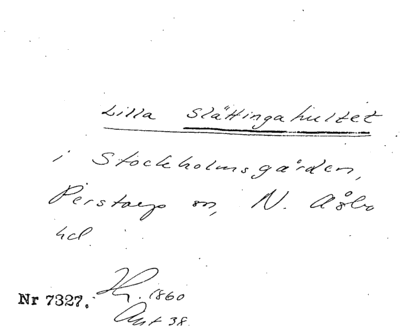 Lilla Slättingahultet
i Stockholmsgården,
Perstorp sn, N. Åsbo
hd.
Nr 7327. Hy. 1860
Ant 38.